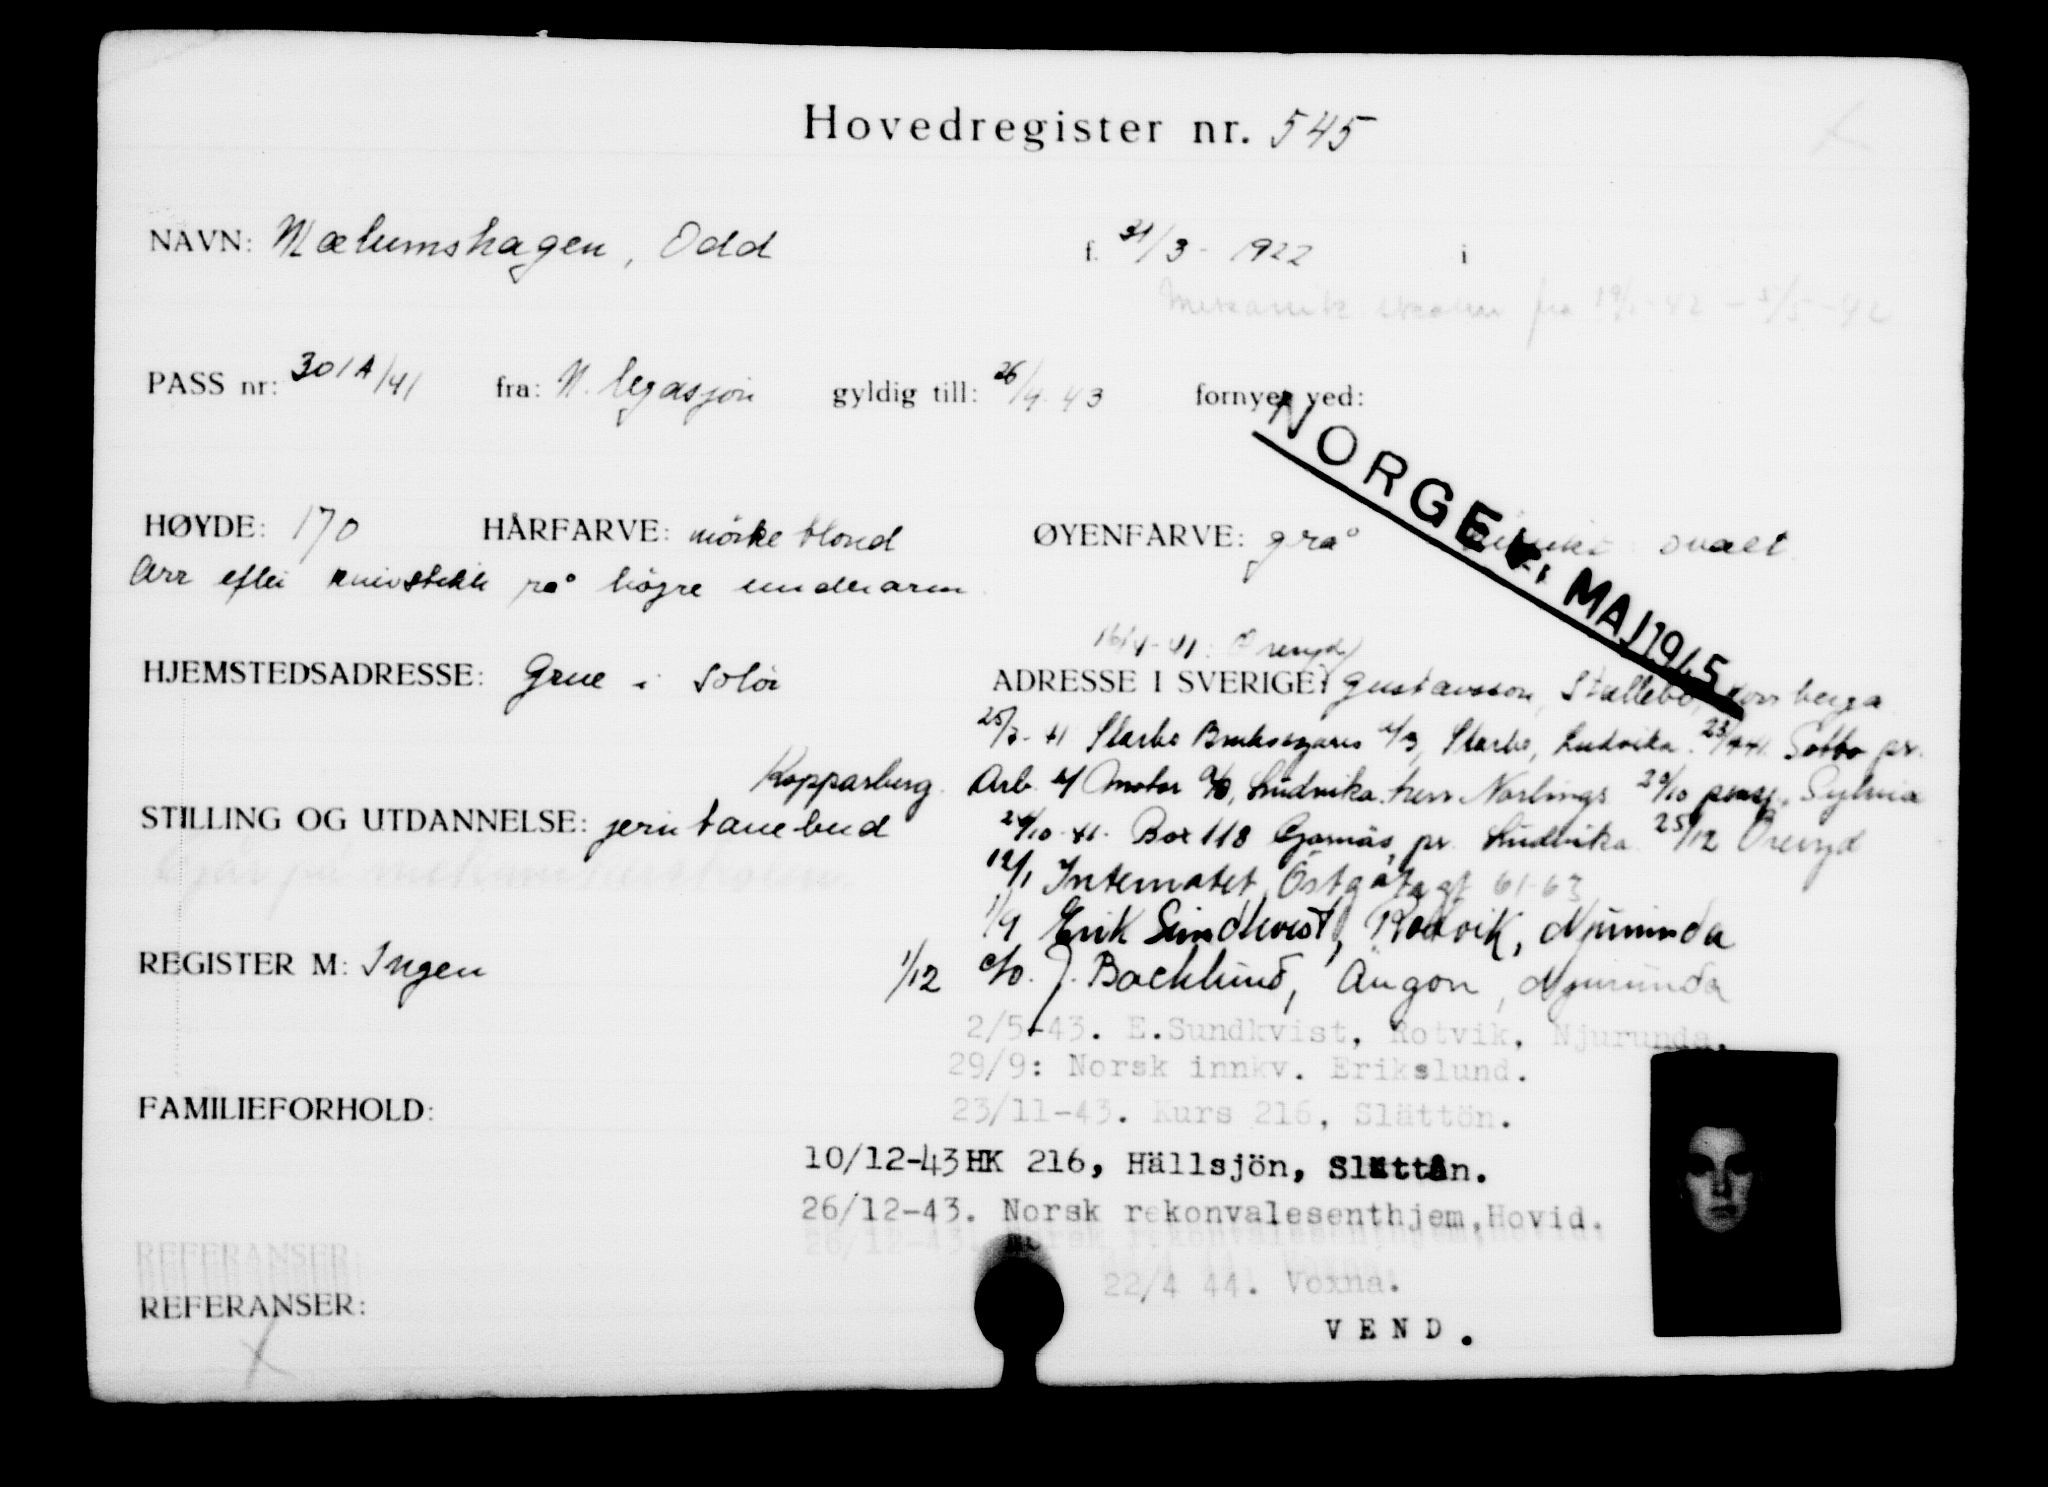 Hovedregister nr. 545
NAVN: Mælumshagen, Odd f. 31/3 - 1922 i
Mekanik skolen fra 19/1-42 - 5/5-42
PASS nr: 301A/41 fra: N. legasjon gyldig till: 26/9 43 fornyet ved:
NORGE MAJ 1945
HØYDE: 170 HÅRFARVE: mörke blond ØYENFARVE: grå ovalt
Arr efter knivstikk på högre underarm
16/4-41: Öreryd
HJEMSTEDSADRESSE: Grue i Solör ADRESSE I SVERIGE: Gustavsson, Korsberga
25/7-41 Starbo Bruksegares Starbo, Ludvika. Sobbo pr.
Kopparberg. Arb. Motor Ludvika. herr Norlings 20/10 pens. Sylvia
STILLING OG UTDANNELSE: jerntanebud
24/10-41. Box 118 Gonäs pr. Ludvika 25/12 Öreryd
12/1 Internatet, Östgötagt 61-63
1/9 Erik Sundkvist, Rotvik, Njurunda
REGISTER M: Ingen
1/12 c/o. J. Backlund, Ängon, Njurunda
2/5-43. E.Sundkvist, Rotvik, Njurunda.
29/9: Norsk innkv. Erikslund.
FAMILIEFORHOLD:
23/11-43. Kurs 216, Slättön.
10/12-43 HK 216, Hällsjön, Slättån.
26/12-43. Norsk rekonvalesenthjem, Hovid.
22/4 44. Voxna.
REFERANSER:
VEND.